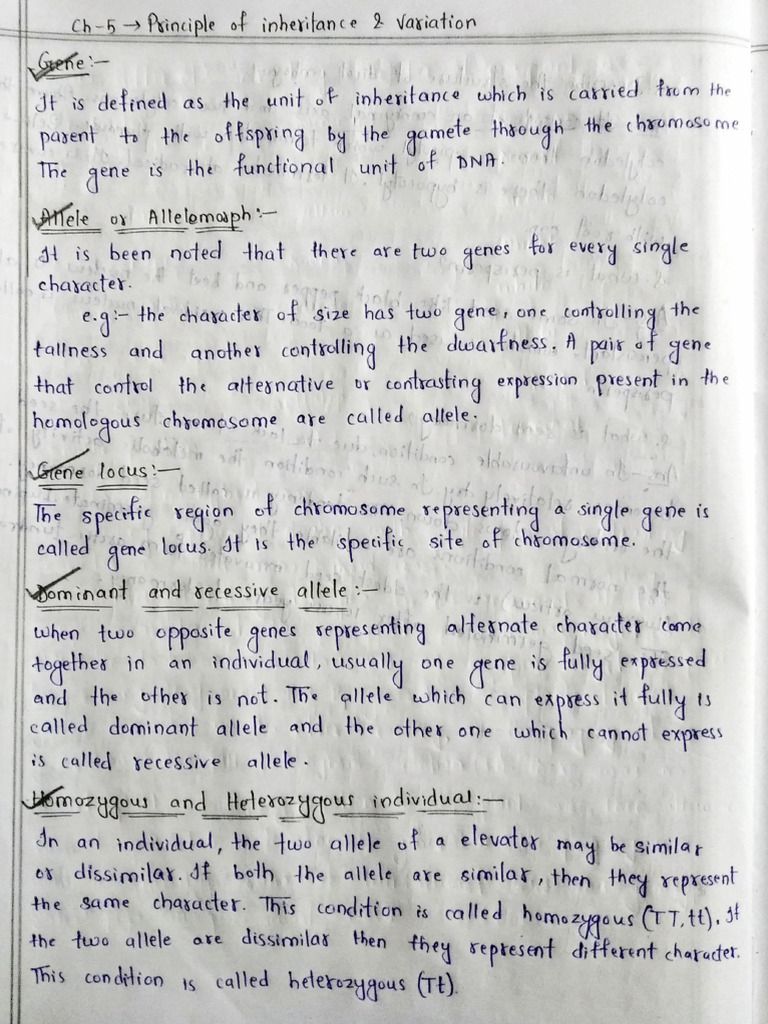 Ch-5 → Principle of inheritance & Variation
Gene:-
It is defined as the unit of inheritance which is carried from the
parent to the offspring by the gamete through the chromosome
The gene is the functional unit of DNA.
Allele or Allelomorph:-
It is been noted that there are two genes for every single
character.
e.g:- the character of size has two gene, one controlling the
tallness and another controlling the dwarfness. A pair of gene
that control the alternative or contrasting expression present in the
homologous chromosome are called allele.
Gene locus:-
The specific region of chromosome representing a single gene is
called gene locus. It is the specific site of chromosome.
Dominant and recessive allele:-
When two opposite genes representing alternate character come
together in an individual, usually one gene is fully expressed
and the other is not. The allele which can express it fully is
called dominant allele and the other one which cannot express
is called recessive allele.
Homozygous and Heterozygous individual:-
In an individual, the two allele of a elevator may be similar
or dissimilar. If both the allele are similar, then they represent
the same character. This condition is called homozygous (TT, tt). If
the two allele are dissimilar then they represent different character.
This condition is called heterozygous (Tt).